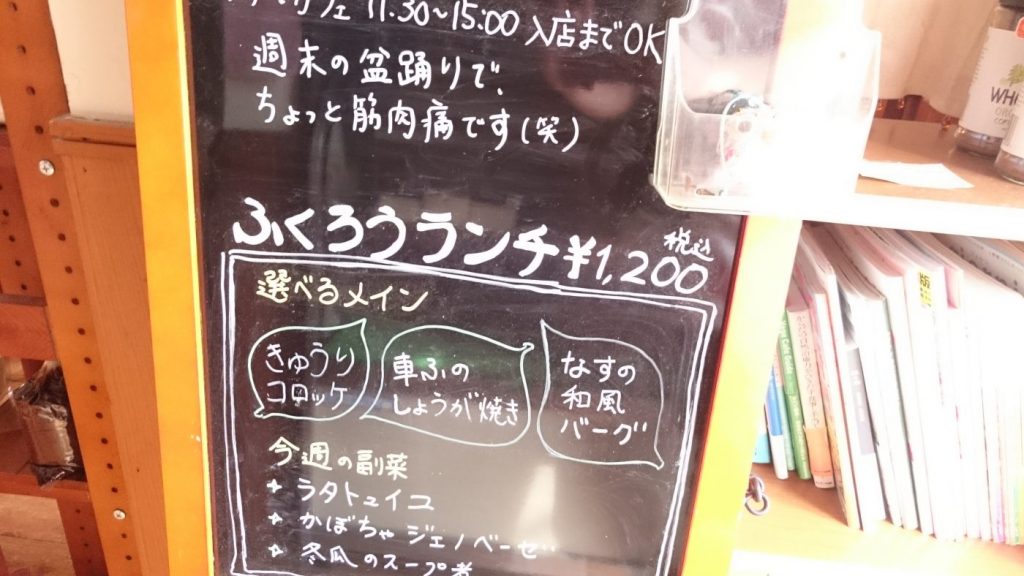 カフェ 11:30~15:00 入店までOK
週末の盆踊りで、
ちょっと筋肉痛です(笑)
ふくろうランチ ¥1,200 税込
選べるメイン
きゅうり
コロッケ
車ふの
しょうが焼き
なすの
和風
バーグ
今週の副菜
ラタトュイユ
かぼちゃジェノベーゼ
冬瓜のスープ煮
WHI
版